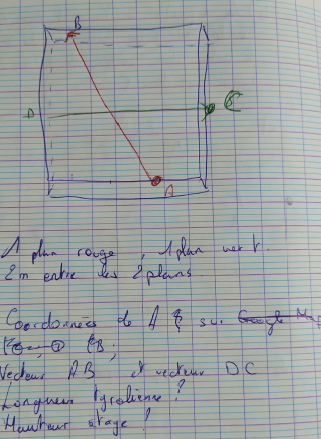 B
D
C
A
1 plan rouge, 1 plan vert.
2m entre les 2 plans.
Coordonnées de A sur Google Map
EB;
Vecteur AB et vecteur DC
Longueur tyrolienne?
Hauteur étage?